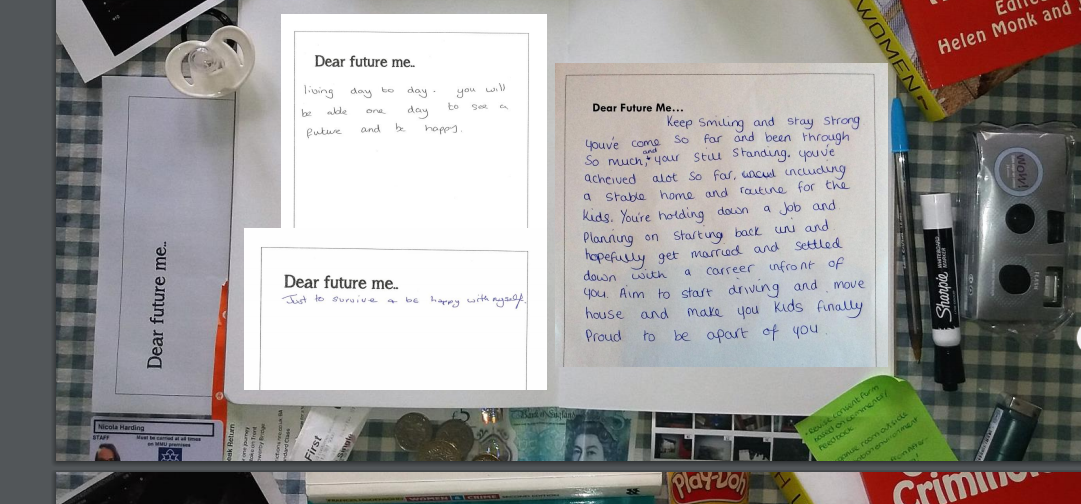 Editi
Helen Monk and
WOMEN
Dear future me..
living day to day. you will
be able one day to see a
future and be happy.
Dear Future Me...
Keep smiling and stay strong
youv'e come so far and been through
so much, and your still standing. youv'e
acheived alot so far, including
a stable home and routine for the
kids. You're holding down a job and
Planning on starting back uni and
hopefully get married and settled
down with a carreer infront of
you. Aim to start driving and move
house and make you kids finally
Proud to be apart of you.
Dear future me..
Just to survive & be happy with myself.
Dear future me..
WOW!
Sharpie
WHITEBOARD
MARKER
FLASH
Nicola Harding
STAFF
Must be carried at all times
on MMU premises
eak Return
First
Bank of England
consent form
based on comments/
feedback
WOMEN & CRIME
Play-Doh
Crimin